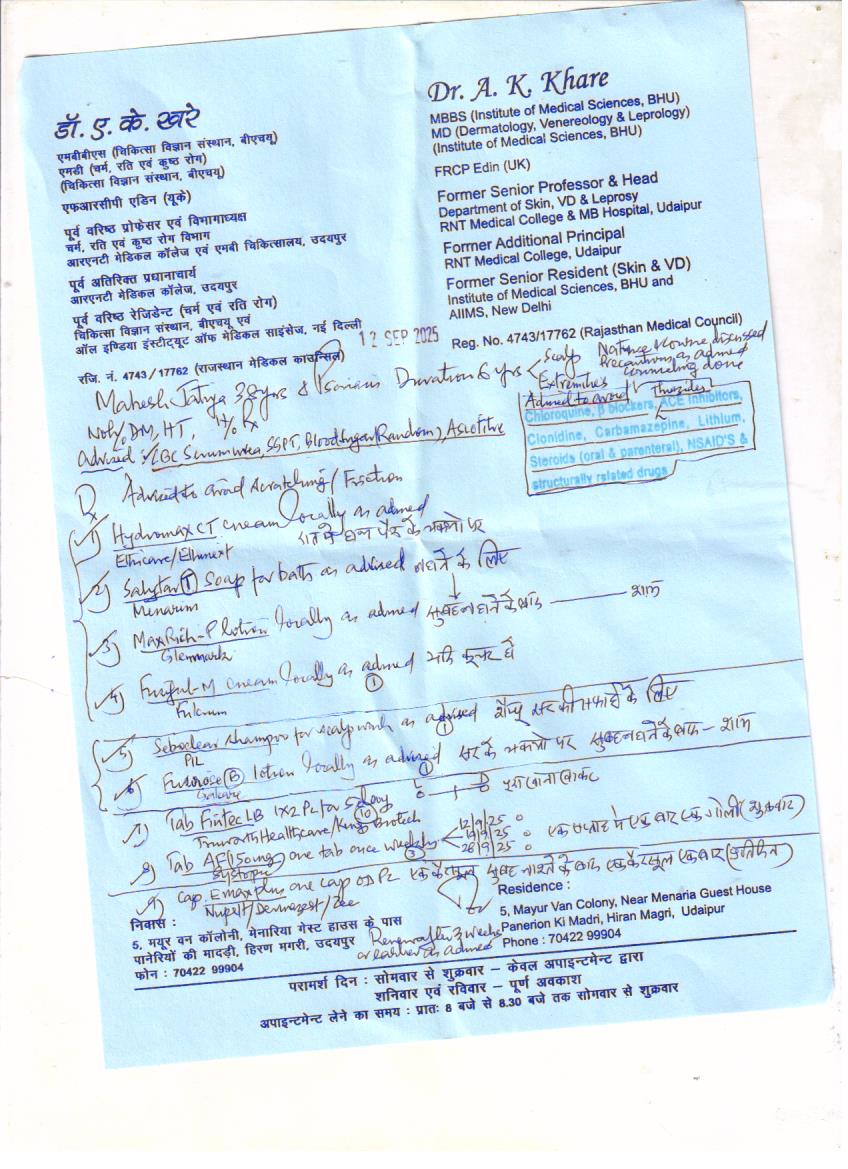 डॉ. ए. के. खरे
एमबीबीएस (चिकित्सा विज्ञान संस्थान, बीएचयू)
एमडी (चर्म, रति एवं कुष्ठ रोग)
(चिकित्सा विज्ञान संस्थान, बीएचयू)
एफआरसीपी एडिन (यूके)
पूर्व वरिष्ठ प्रोफेसर एवं विभागाध्यक्ष
चर्म, रति एवं कुष्ठ रोग विभाग
आरएनटी मेडिकल कॉलेज एवं एमबी चिकित्सालय, उदयपुर
पूर्व अतिरिक्त प्रधानाचार्य
आरएनटी मेडिकल कॉलेज, उदयपुर
पूर्व वरिष्ठ रेजिडेन्ट (चर्म एवं रति रोग)
चिकित्सा विज्ञान संस्थान, बीएचयू एवं
ऑल इण्डिया इंस्टीट्यूट ऑफ मेडिकल साइंसेज, नई दिल्ली
रजि. नं. 4743/17762 (राजस्थान मेडिकल काउन्सिल)
Dr. A. K. Khare
MBBS (Institute of Medical Sciences, BHU)
MD (Dermatology, Venereology & Leprology)
(Institute of Medical Sciences, BHU)
FRCP Edin (UK)
Former Senior Professor & Head
Department of Skin, VD & Leprosy
RNT Medical College & MB Hospital, Udaipur
Former Additional Principal
RNT Medical College, Udaipur
Former Senior Resident (Skin & VD)
Institute of Medical Sciences, BHU and
AIIMS, New Delhi
Reg. No. 4743/17762 (Rajasthan Medical Council)
12 SEP 2025
Mahesh 38yrs Psoriasis Duration 6 yrs Scalp
Extremities
Nature & course discussed
Precautions as advised
Counseling done
DM, HT,
Advised: CBC Serum urea, SGPT, Blood Sugar (Random),
Advised to avoid Thiazides
Chloroquine, β blockers, ACE inhibitors,
Clonidine, Carbamazepine, Lithium,
Steroids (oral & parenteral), NSAID'S &
structurally related drugs
Advised to avoid scratching/Friction
1) cream locally as advised
2) Salytar (T) Soap for bath as advised नहाने के लिए
3) MaxRich-P lotion locally as advised सुबह नहाने के बाद — शाम
Glenmark
4) cream locally as advised
5) Seboclear shampoo for scalp wash as advised शैम्पू सर की सफाई के लिए
6) (B) lotion locally as advised सर के चकत्तो पर सुबह नहाने के बाद - शाम
7) Tab Fintec LB 1x2 PC for 5 days
8) Tab one tab once weekly
12/9/25
19/9/25
26/9/25
एक सप्ताह मे एक बार एक गोली (शुक्रवार)
9) Cap. one cap OD PC एक कैप्सूल सुबह नाश्ते के बाद एक कैप्सूल एक बार (प्रतिदिन)
Review after 3 weeks
or earlier as advised
निवास :
5, मयूर वन कॉलोनी, मेनारिया गेस्ट हाउस के पास
पानेरियों की मादड़ी, हिरण मगरी, उदयपुर
फोन : 70422 99904
Residence :
5, Mayur Van Colony, Near Menaria Guest House
Panerion Ki Madri, Hiran Magri, Udaipur
Phone : 70422 99904
परामर्श दिन : सोमवार से शुक्रवार – केवल अपाइन्टमेन्ट द्वारा
शनिवार एवं रविवार – पूर्ण अवकाश
अपाइन्टमेन्ट लेने का समय : प्रातः 8 बजे से 8.30 बजे तक सोमवार से शुक्रवार